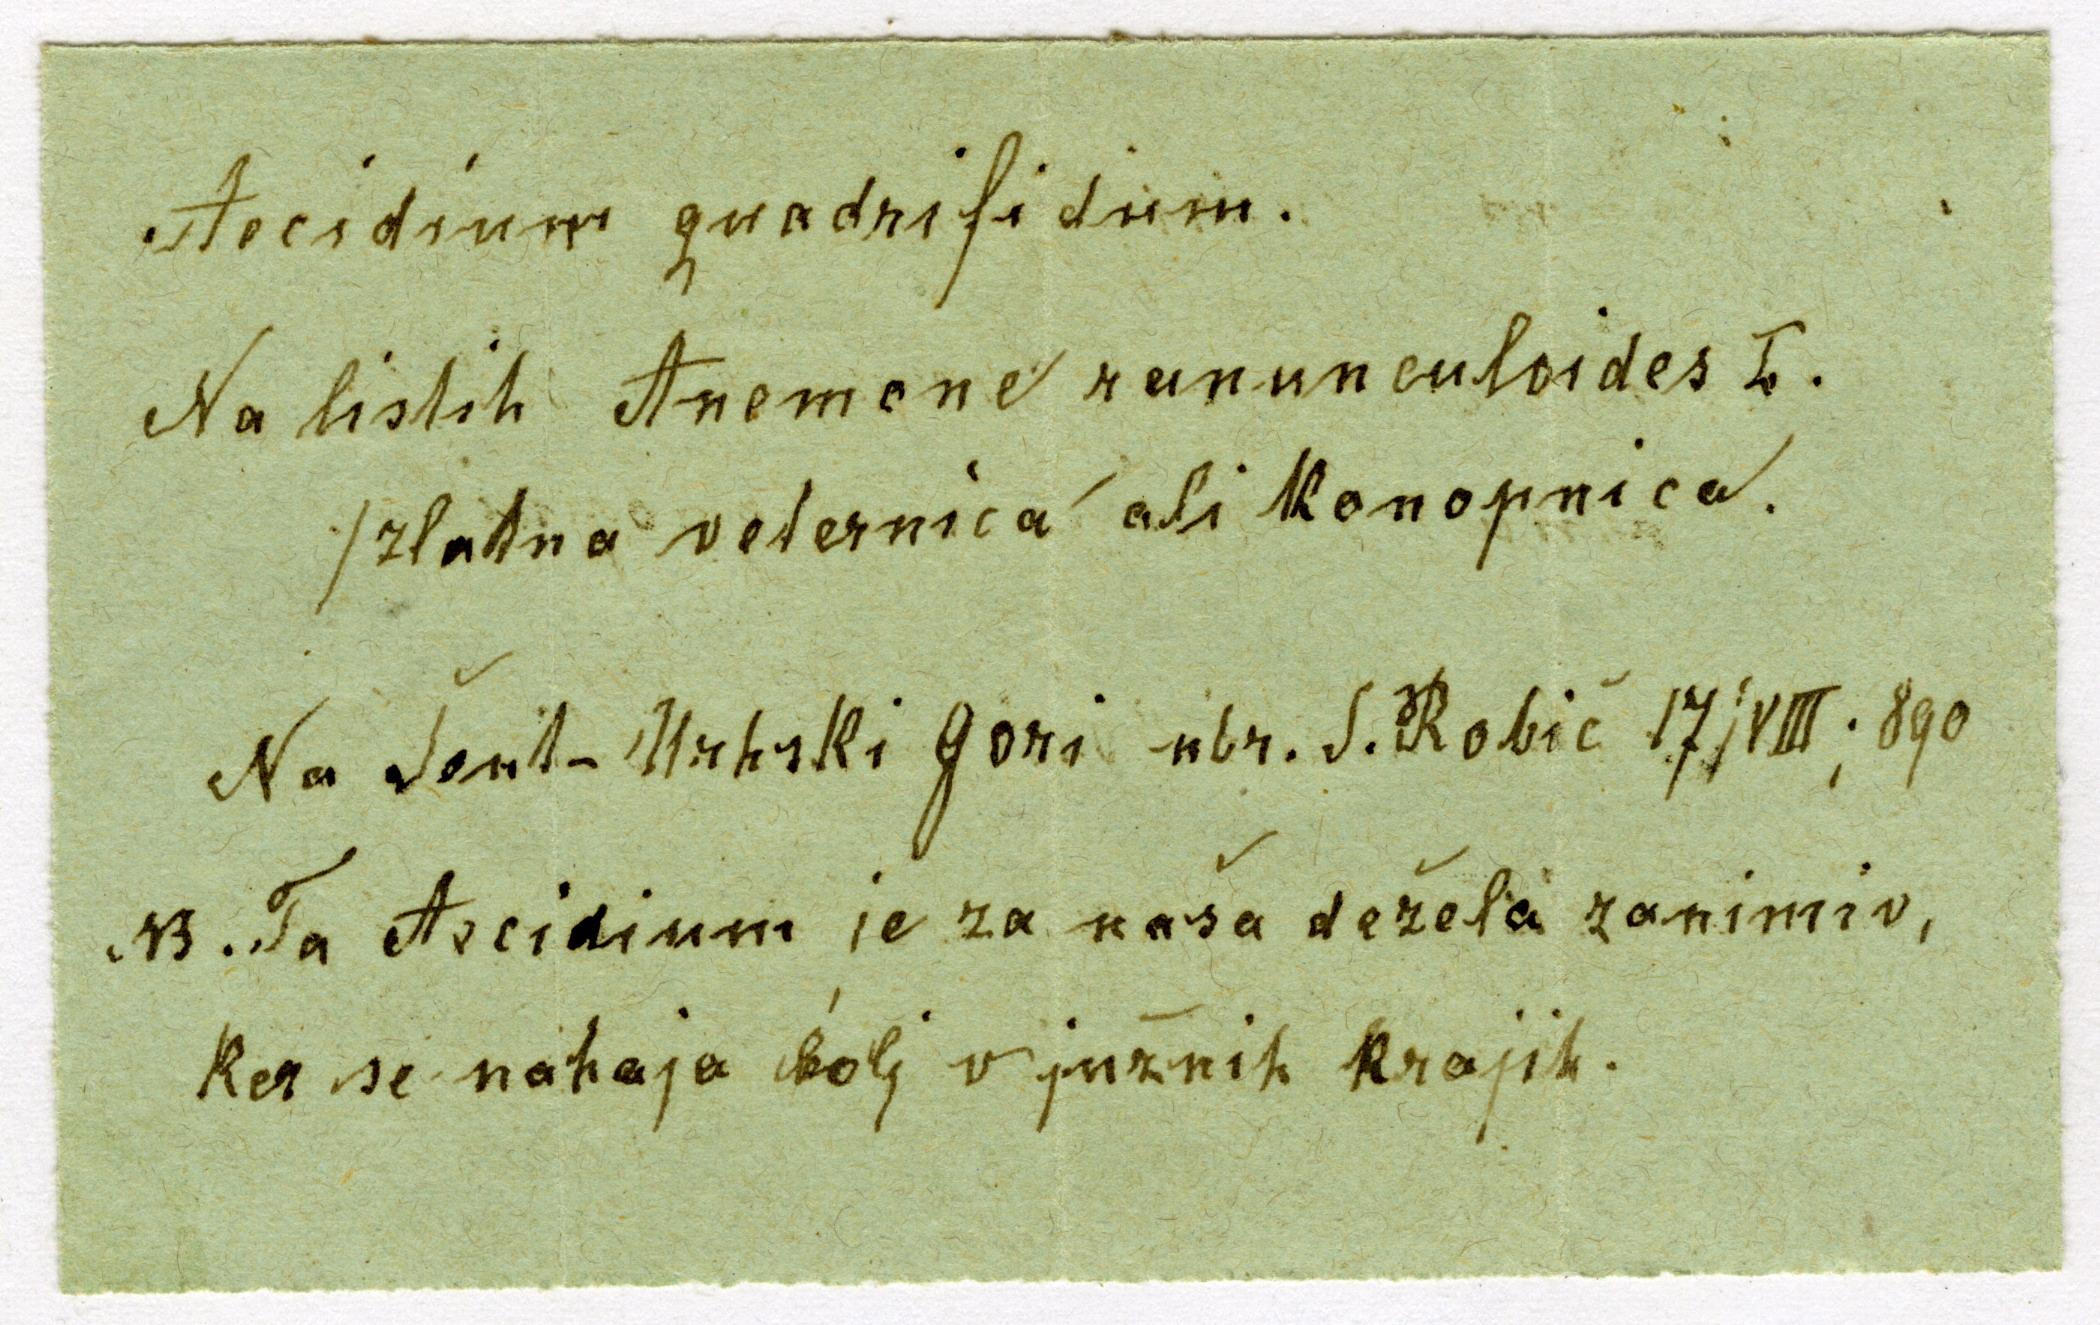 Aecidium quadrifidum.
Na listih Anemone ranunculoides L.
/zlatna veternica ali konopnica.
Na Šent-Urhski gori nbr. S. Robič 17/VIII; 890
NB. Ta Aecidium je za naša dežela zanimiv,
ker se nahaja bolj v južnih krajih.